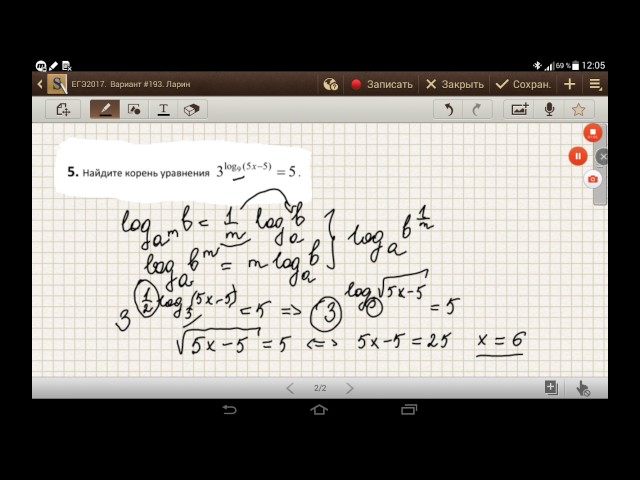 69% 12:05
ЕГЭ2017. Вариант #193. Ларин Записать Закрыть Сохран.
5. Найдите корень уравнения 3^{log₉(5x−5)} = 5.
log_{a^m} b = 1/m log_a b
log_a b^m = m log_a b } log_a b^{1/m}
3^{1/2 log_3 (5x−5)} = 5 => 3^{log_3 √(5x−5)} = 5
√(5x−5) = 5 <=> 5x−5 = 25 x = 6
2/2